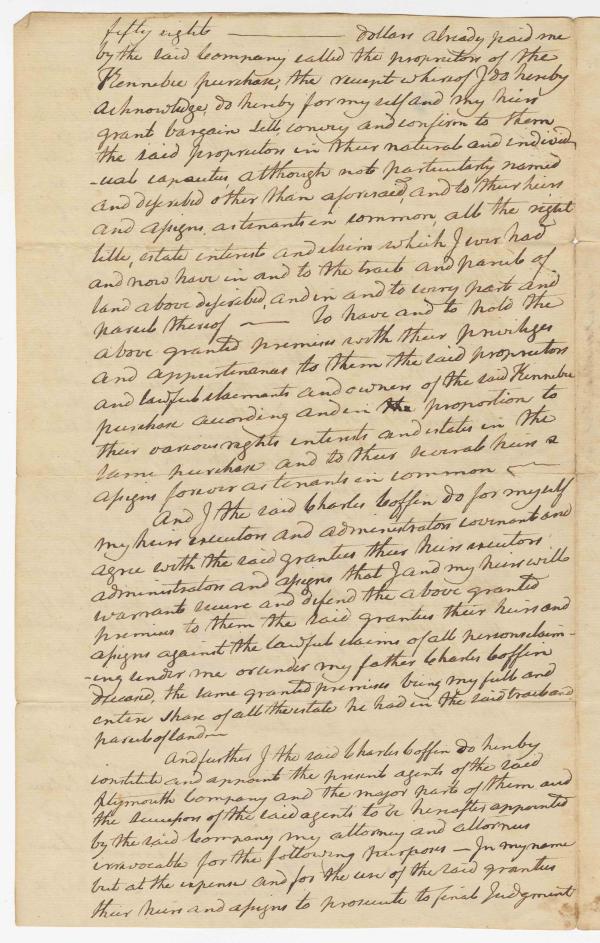 fifty eight ———— dollars already paid me
by the said Company called the proprietors of the
Kennebec purchase, the receipt whereof I do hereby
acknowledge, do hereby for my self and my heirs
grant bargain sell, convey and confirm to them
the said proprietors in their natural and individ-
-ual capacities although not particularly named
and described other than aforesaid, and to their heirs
and assigns, as tenants in common, all the right
title, estate interest and claim which I ever had
and now have in and to the tracts and parcels of
land above described, and in and to every part and
parcel thereof —— To have and to hold the
above granted premises with their priviliges
and appurtenances to them the said proprietors
and lawful claimants and owners of the said Kennebec
purchase according and in the proportion to
their various rights interests and estates in the
same purchase and to their several heirs &
assigns forever as tenants in common ——
And I the said Charles Coffin do for myself
my heirs executors and administrators covenant and
agree with the said grantees their heirs executors
administrators and assigns that I and my heirs will
warrant secure and defend the above granted
premises to them the said grantees their heirs and
assigns against the lawful claims of all persons claim-
-ing under me or under my father Charles Coffin
deceased, the same granted premises being my full and
entire share of all the estate he had in the said tracts and
parcels of land —
And further I the said Charles Coffin do hereby
constitute and appoint the present agents of the said
Plymouth Company and the major part of them and
the successors of the said agents to be hereafter appointed
by the said Company my attorney and attornies
irrevocable for the following purposes — In my name
but at the expense and for the use of the said grantees
their heirs and assigns to prosecute to final Judgment